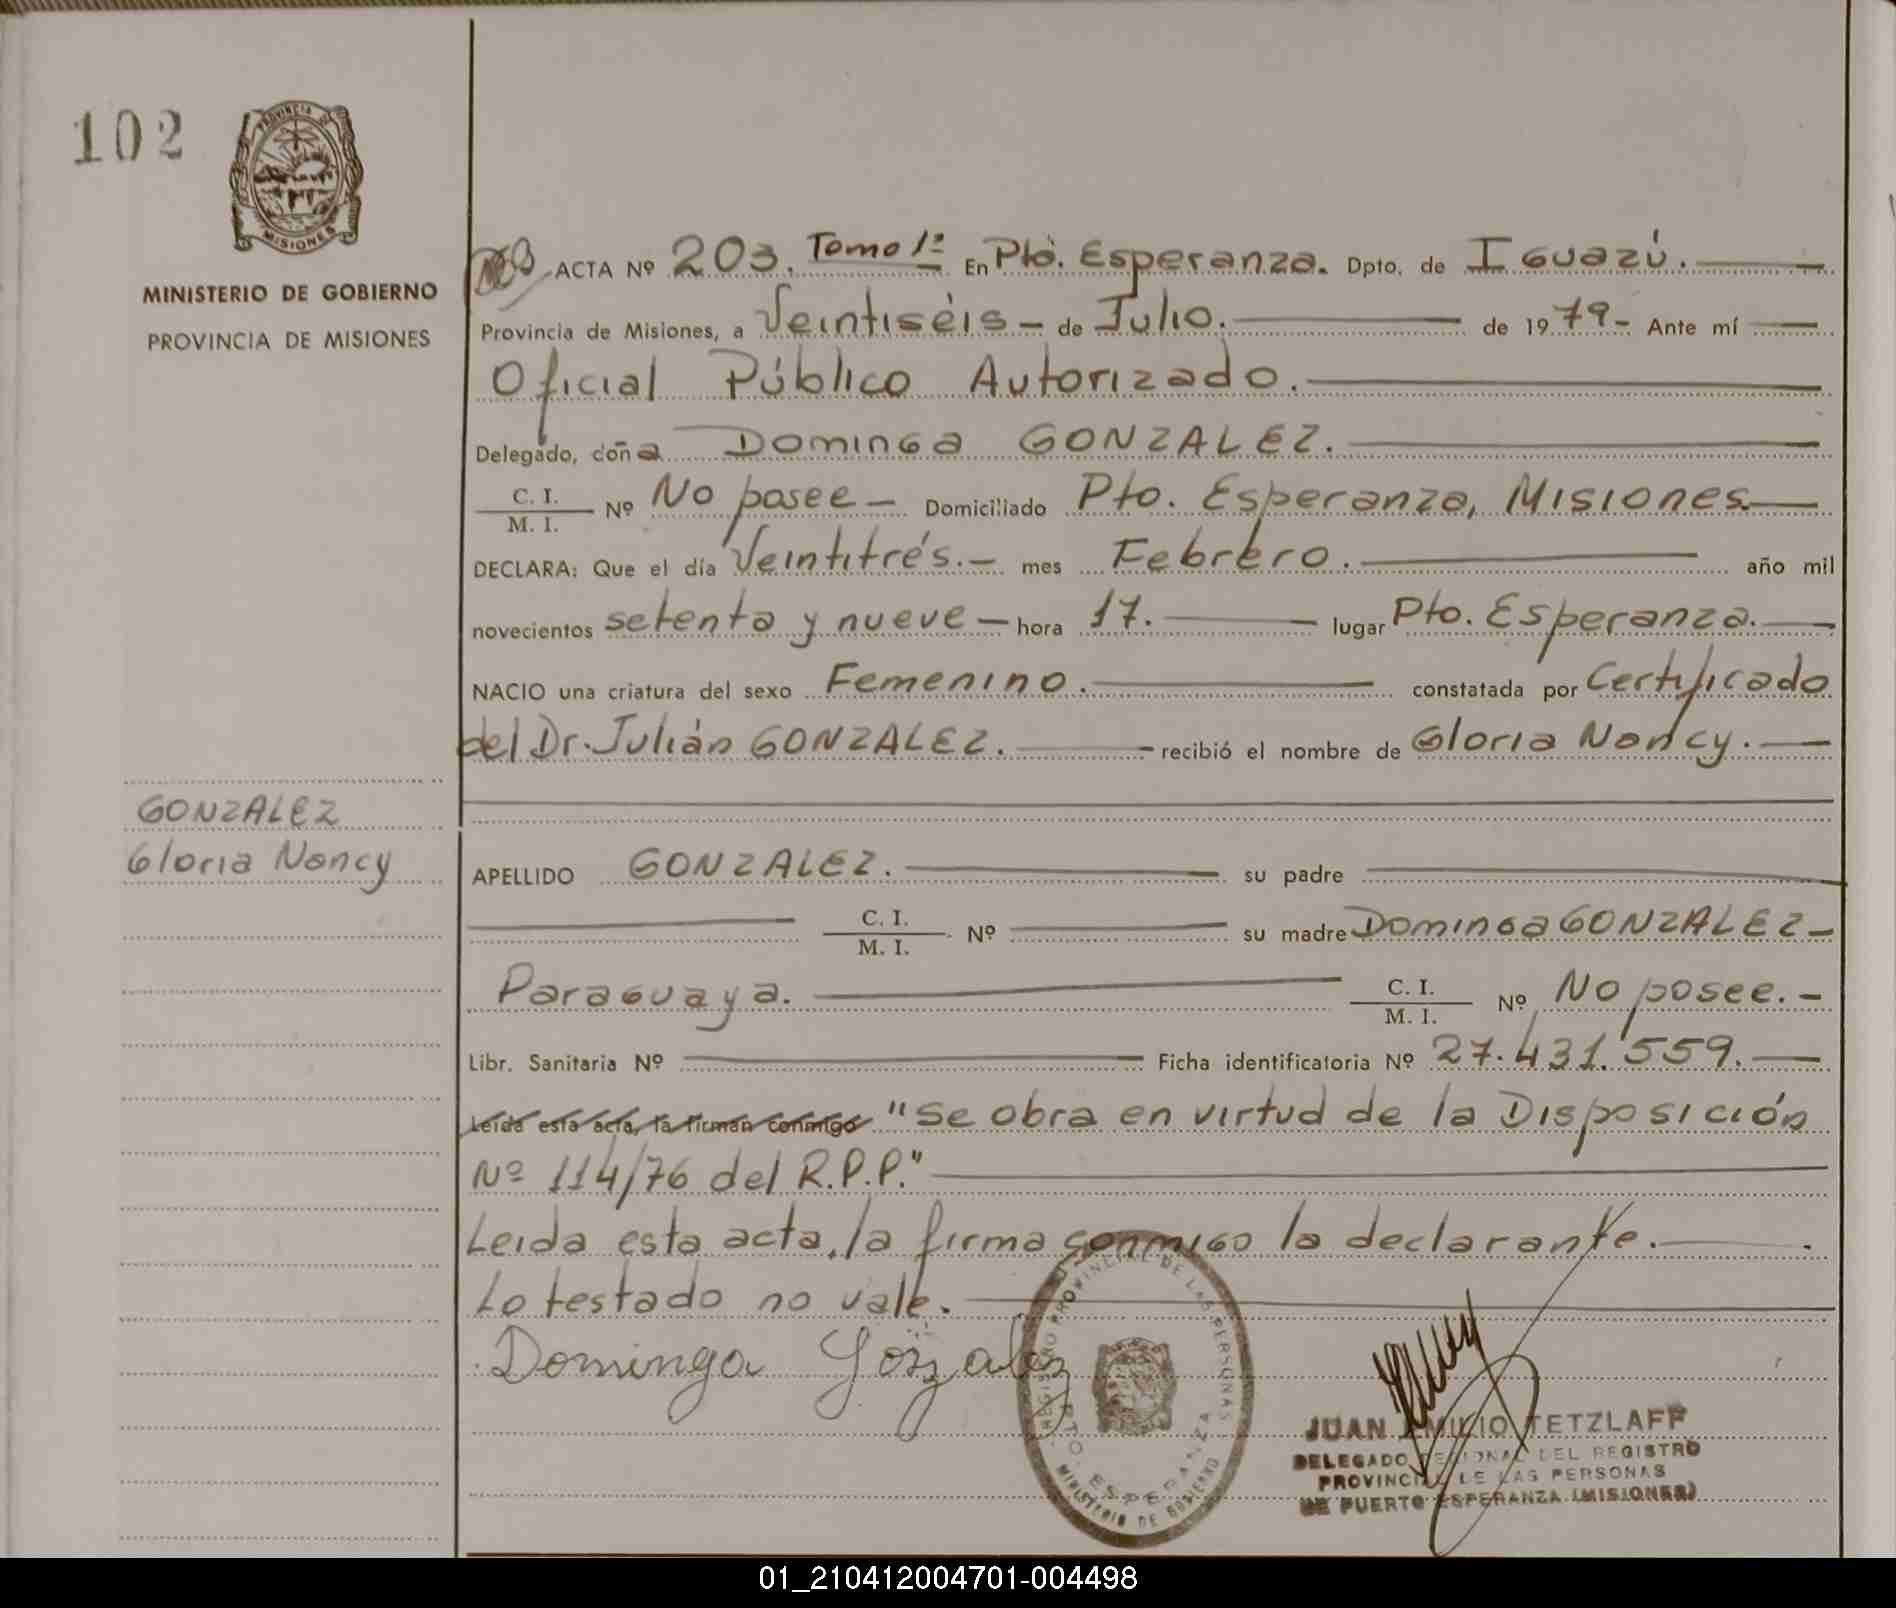 102
PROVINCIA DE
MISIONES
MINISTERIO DE GOBIERNO
PROVINCIA DE MISIONES
ACTA Nº 203. Tomo 1º En Pto. Esperanza. Dpto. de Iguazú.
Provincia de Misiones, a Veintiséis - de Julio. de 1979- Ante mí
Oficial Público Autorizado.
Delegado, doña Dominga GONZALEZ.
C. I.
M. I. Nº No posee - Domiciliado Pto. Esperanza, Misiones
DECLARA: Que el día Veintitrés.- mes Febrero. año mil
novecientos setenta y nueve - hora 17. lugar Pto. Esperanza.
NACIO una criatura del sexo Femenino. constatada por Certificado
del Dr. Julián GONZALEZ. recibió el nombre de Gloria Nancy.
GONZALEZ
Gloria Nancy
APELLIDO GONZALEZ. su padre
C. I.
M. I. Nº su madre Dominga GONZALEZ-
Paraguaya. C. I.
M. I. Nº No posee.-
Libr. Sanitaria Nº Ficha identificatoria Nº 27.431.559.
Leída esta acta, la firman conmigo "Se obra en virtud de la Disposición
Nº 114/76 del R.P.P."
Leida esta acta, la firma conmigo la declarante.
Lo testado no vale.
Dominga Gonzalez
REGISTRO PROVINCIAL DE LAS PERSONAS
PTO. ESPERANZA
MINISTERIO DE GOBIERNO
JUAN EMILIO TETZLAFF
DELEGADO REGIONAL DEL REGISTRO
PROVINCIAL DE LAS PERSONAS
DE PUERTO ESPERANZA (MISIONES)
01_210412004701-004498